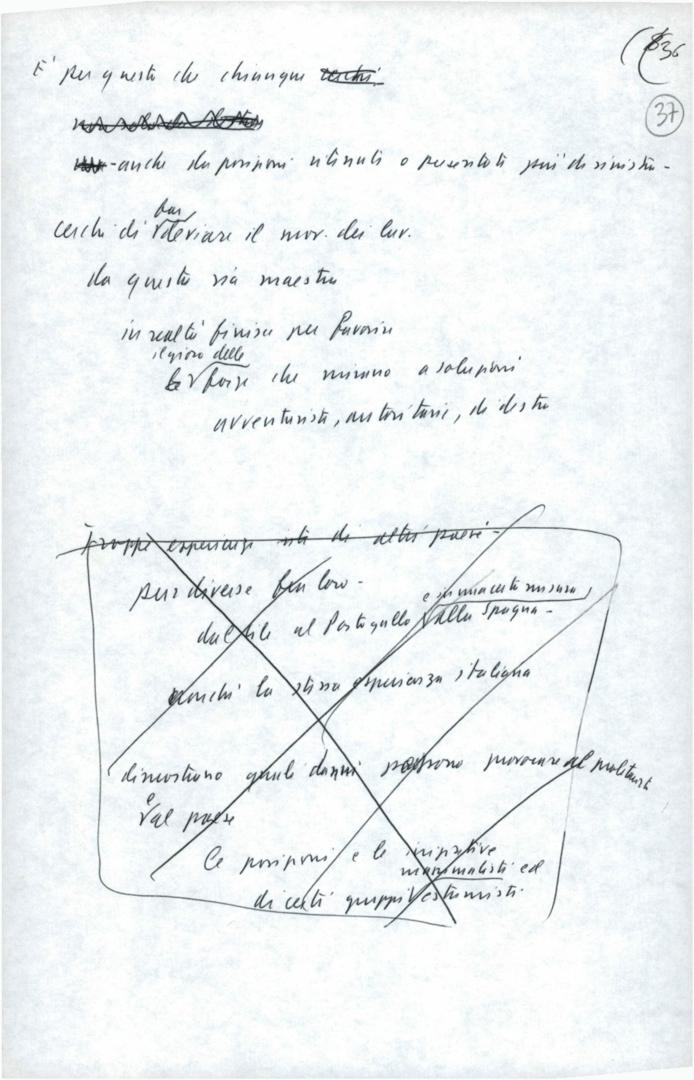 36
37
E' per questo che chiunque cerchi
-anche da posizioni ritenute o presentate più di sinistra-
far
cerchi di deviare il mov. dei lav.
da questa via maestra
in realtà finisce per favorire
il gioco delle
le forze che mirano a soluzioni
avventuriste, autoritarie, di destra
Troppe esperienze di altri paesi-
pur diverse fra loro-
e in una certa misura
dal Cile al Portogallo alla Spagna-
nonché la stessa esperienza italiana
dimostrano quali danni possono provocare al
e al paese
le posizioni e le iniziative
massimalisti ed
di certi gruppi estremisti